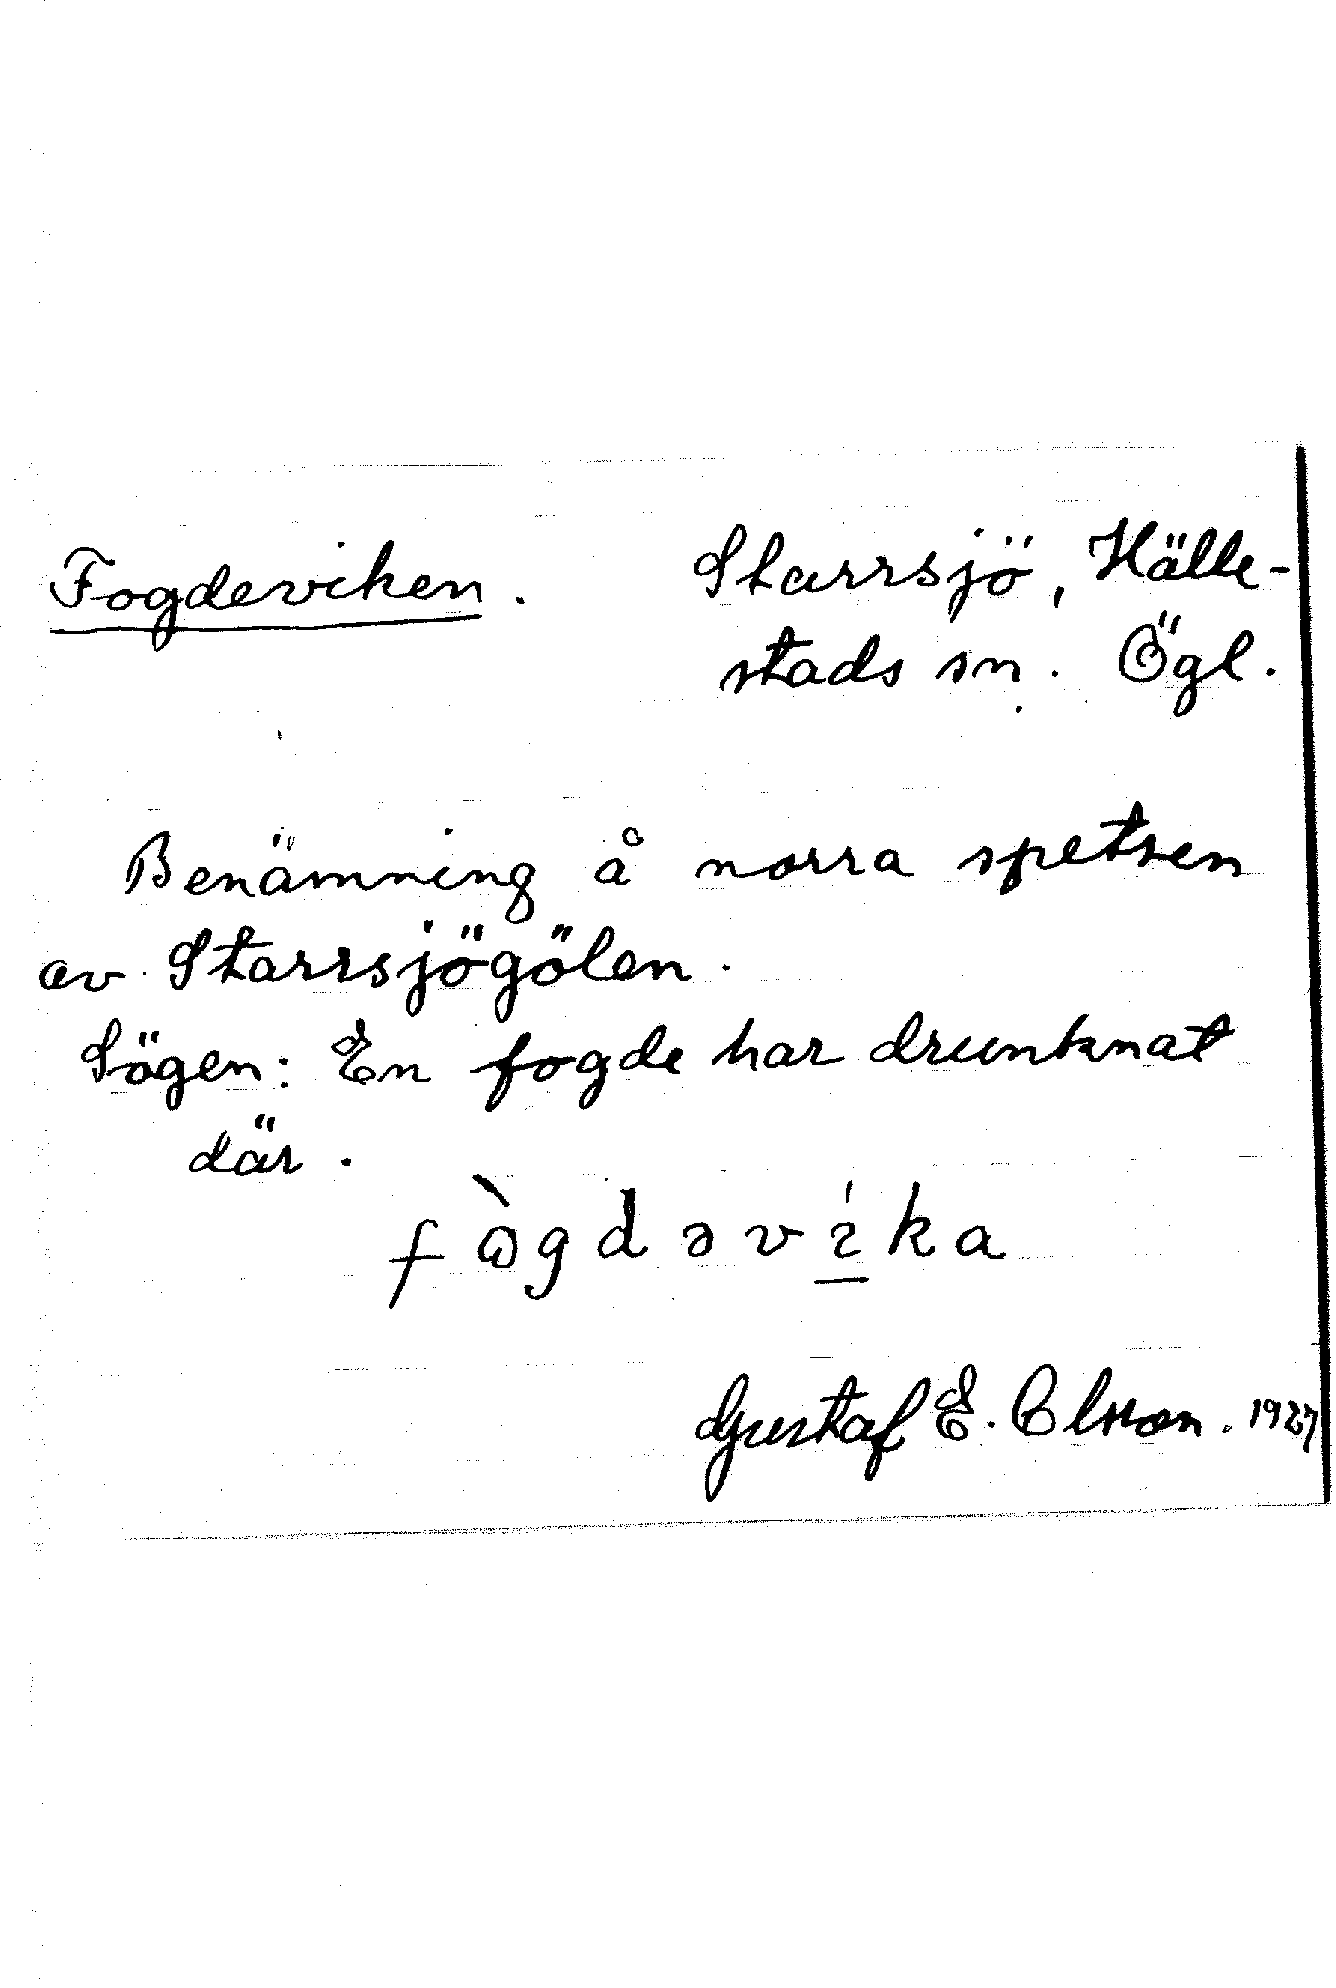 Fogdeviken. Starrsjö, Hälle-
stads sn. Ögl.
Benämning å norra spetsen
av Starrsjögölen.
Sägen: En fogde har drunknat
där.
Gustaf E. Olsson. 1927